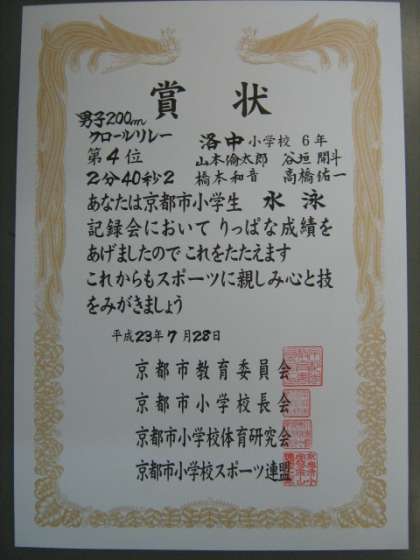 賞状
男子200m
クロールリレー
洛中小学校 6年
第4位
山本倫太郎 谷垣開斗
2分40秒2
橋本和音 高橋佑一
あなたは京都市小学生 水泳
記録会において りっぱな成績を
あげましたので これをたたえます
これからもスポーツに親しみ心と技
をみがきましょう
平成23年7月28日
京都市教育委員会
京都市小学校長会
京都市小学校体育研究会
京都市小学校スポーツ連盟